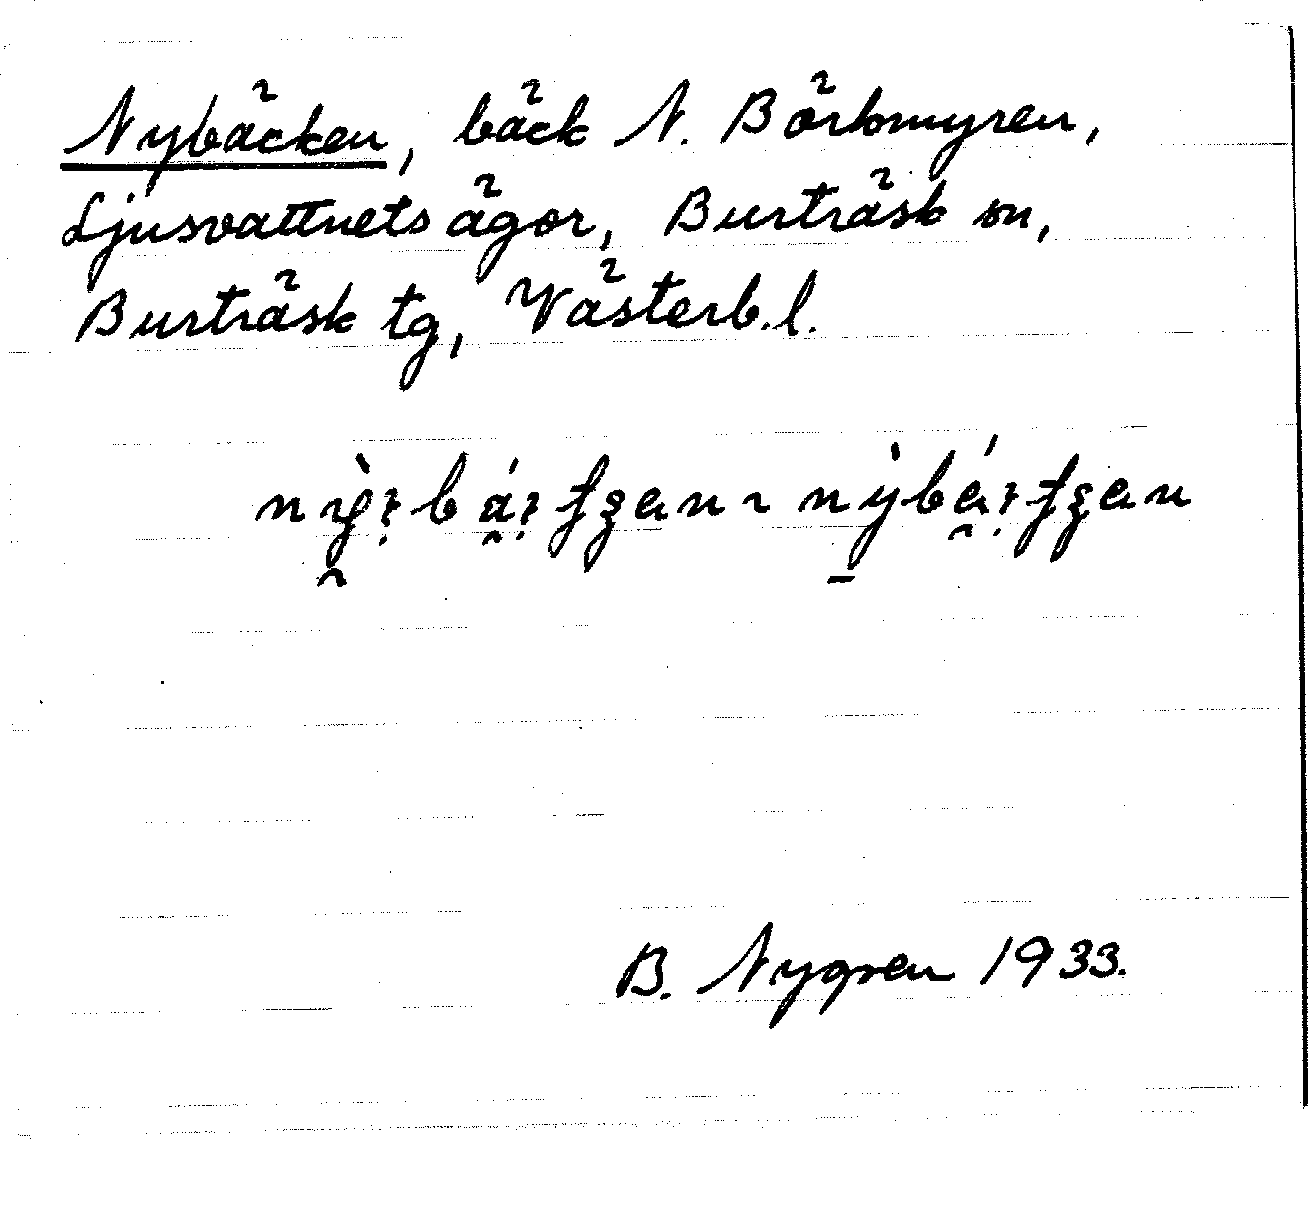 Nybäcken, bäck N. Börkmyren,
Ljusvattnets ägor, Burträsk sn,
Burträsk tg, Västerb. l.
B. Nygren 1933.